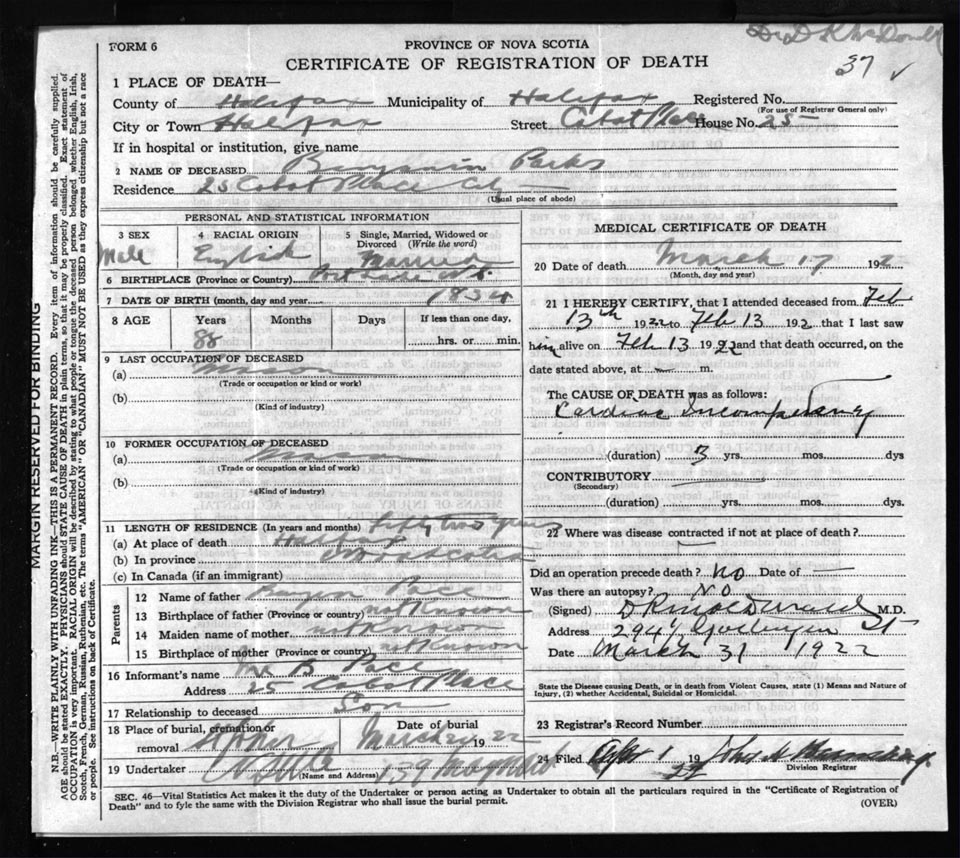 Dr D K McDonald
FORM 6
PROVINCE OF NOVA SCOTIA
CERTIFICATE OF REGISTRATION OF DEATH
37 ✓
1 PLACE OF DEATH—
County of Halifax Municipality of Halifax Registered No.
(For use of Registrar General only)
City or Town Halifax Street Cabot Place House No. 25
If in hospital or institution, give name
2 NAME OF DECEASED Benjamin Parks
Residence 25 Cabot Place City
(Usual place of abode)
PERSONAL AND STATISTICAL INFORMATION
3 SEX Male
4 RACIAL ORIGIN English
5 Single, Married, Widowed or Divorced (Write the word) Married
6 BIRTHPLACE (Province or Country) N.S.
7 DATE OF BIRTH (month, day and year) 1834
8 AGE Years Months Days If less than one day,
88 hrs. or min.
9 LAST OCCUPATION OF DECEASED
(a) Mason
(Trade or occupation or kind or work)
(b)
(Kind of industry)
10 FORMER OCCUPATION OF DECEASED
(a) Mason
(Trade or occupation or kind or work)
(b)
(Kind of industry)
11 LENGTH OF RESIDENCE (In years and months) Fifty two years
(a) At place of death Halifax
(b) In province
(c) In Canada (if an immigrant)
Parents
12 Name of father Pace
13 Birthplace of father (Province or country) not Known
14 Maiden name of mother not Known
15 Birthplace of mother (Province or country) not Known
16 Informant's name Mr B Pace
Address 25 Cabot Place
17 Relationship to deceased Son
18 Place of burial, cremation or removal
Date of burial March 20 1922
19 Undertaker 159
(Name and Address)
MEDICAL CERTIFICATE OF DEATH
20 Date of death March 17 192
(Month, day and year)
21 I HEREBY CERTIFY, that I attended deceased from Feb
13th 1922 to Feb 13 192 that I last saw
him alive on Feb 13 1922 and that death occurred, on the
date stated above, at m.
The CAUSE OF DEATH was as follows:
Cardiac Incompetency
(duration) 3 yrs. mos. dys
CONTRIBUTORY
(Secondary)
(duration) yrs. mos. dys.
22 Where was disease contracted if not at place of death?
Did an operation precede death? No Date of —
Was there an autopsy? No
(Signed) M.D.
Address 294½ Gottingen St
Date March 31 1922
State the Disease causing Death, or in death from Violent Causes, state (1) Means and Nature of Injury, (2) whether Accidental, Suicidal or Homicidal.
23 Registrar's Record Number
24 Filed Apr 1 1922 John
Division Registrar
SEC. 46—Vital Statistics Act makes it the duty of the Undertaker or person acting as Undertaker to obtain all the particulars required in the "Certificate of Registration of
Death" and to fyle the same with the Division Registrar who shall issue the burial permit.
(OVER)
MARGIN RESERVED FOR BINDING
N.B.—WRITE PLAINLY WITH UNFADING INK—THIS IS A PERMANENT RECORD. Every item of information should be carefully supplied.
AGE should be stated EXACTLY. PHYSICIANS should STATE CAUSE OF DEATH in plain terms, so that it may be properly classified. Exact statement of
OCCUPATION is very important. RACIAL ORIGIN will be described by stating to what people or tongue the deceased person belonged, whether English, Irish,
Scotch, French, German, Russian, Ruthenian, etc. The terms "AMERICAN" OR "CANADIAN" MUST NOT BE USED as they express citizenship but not a race
or people. See instructions on back of Certificate.